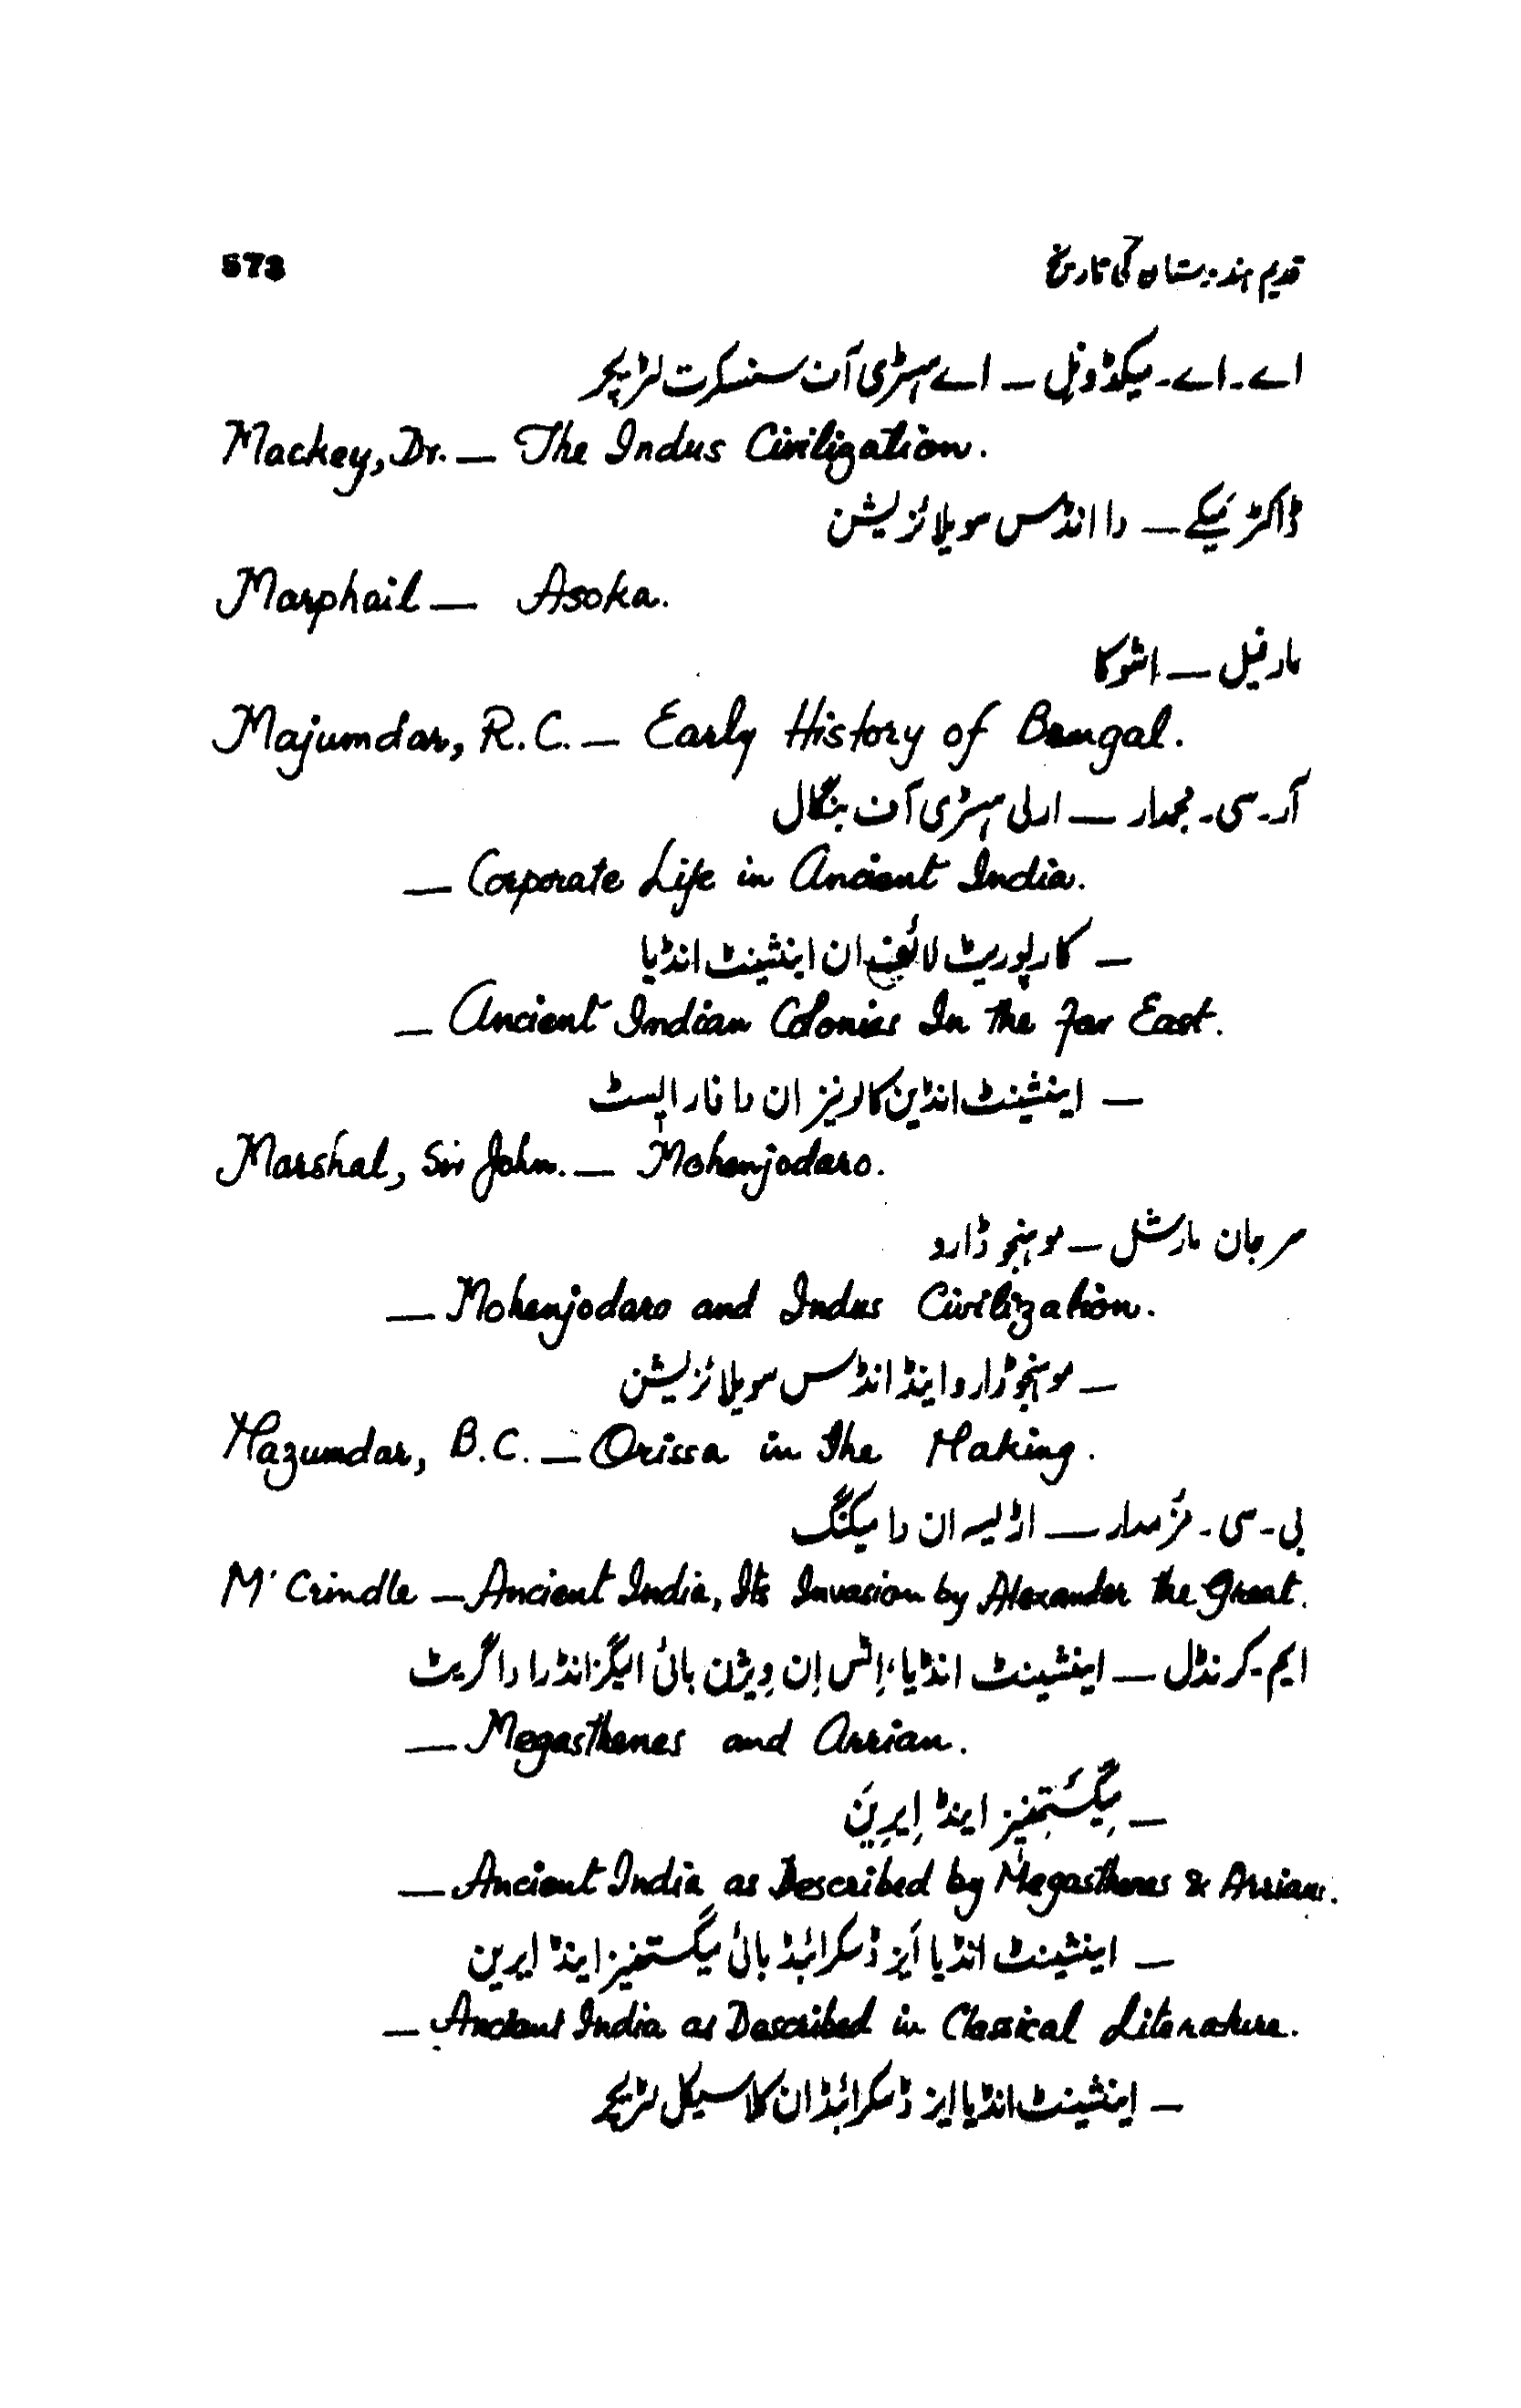 573 قدیم ہندوستان کی تاریخ
اے۔اے۔میکڈونل — اے ہسٹری آف سنسکرت لٹریچر
Mackey, Dr. — The Indus Civilization.
ڈاکٹر میکے — دا انڈس سویلائزیشن
Marphail — Asoka.
مارفیل — اشوکا
Majumdar, R.C. — Early History of Bengal.
آر۔سی۔مجمدار — ارلی ہسٹری آف بنگال
— Corporate Life in Ancient India.
— کارپوریٹ لائف ان اینشینٹ انڈیا
— Ancient Indian Colonies In the Far East.
— اینشینٹ انڈین کالونیز ان دا فار ایسٹ
Marshal, Sir John. — Mohenjodaro.
سر جان مارشل — موہنجو ڈارو
— Mohenjodaro and Indus Civilization.
— موہنجو ڈارو اینڈ انڈس سویلائزیشن
Mazumdar, B.C. — Orissa in the Making.
بی۔سی۔مزمدار — اڑیسہ ان دا میکنگ
M' Crindle — Ancient India, Its Invasion by Alexander the Great.
ایم۔کرنڈل — اینشینٹ انڈیا، اِٹس اِن وِیژن بائی الیگزانڈرا دا گریٹ
— Megasthenes and Arrian.
— مِیگَستھنیز اینڈ اِیرِیَن
— Ancient India as Described by Megasthenes & Arrian.
— اینشینٹ انڈیا اَیز ڈسکرائبڈ بائی میگستھنیز اینڈ ایرین
— Ancient India as Described in Classical Literature.
— اینشینٹ انڈیا ایز ڈسکرائبڈ ان کلاسیکل لٹریچر